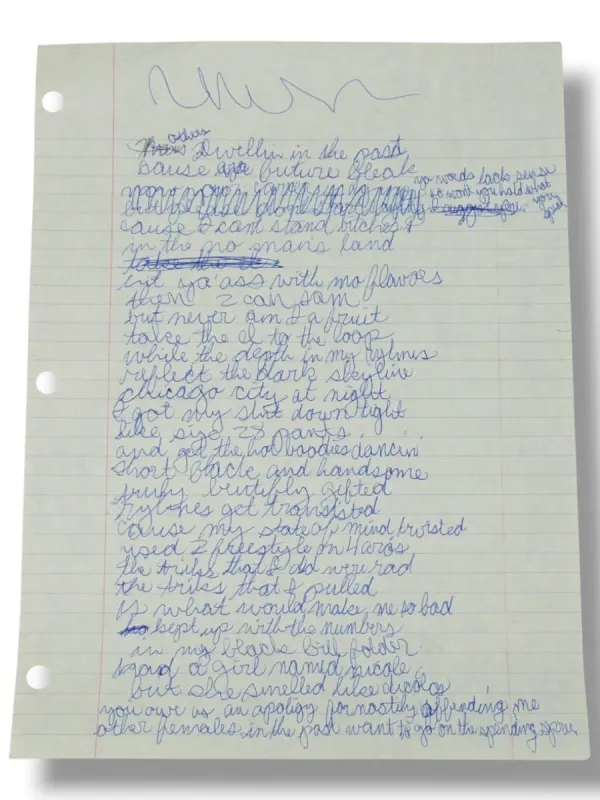 others
Dwellin in the past
cause ya future bleak
ya words lack sense
so wont you hold what
you
spit
cause I cant stand bitches
in the no man's land
cut ya'ass with mo flavors
then I can sam
but never am I a fruit
take the el to the loop
while the depth in my rylmes
reflect the dark skyline
chicago city at night
I got my shit down tight
like size 28 pants
and get the hot boodies dancin
short black and handsome
truly beutifly gifted
rylmes get transisted
cause my state of mind twisted
used 2 freestyle on 4
the triks that I did were rad
the triks that I pulled
is what would make me so bad
kept up with the numbers
in my black folder
a girl named nicole
but she smelled like
you owe us an apoligy for nastely offinding me
other females in the past want to go on the spending spree